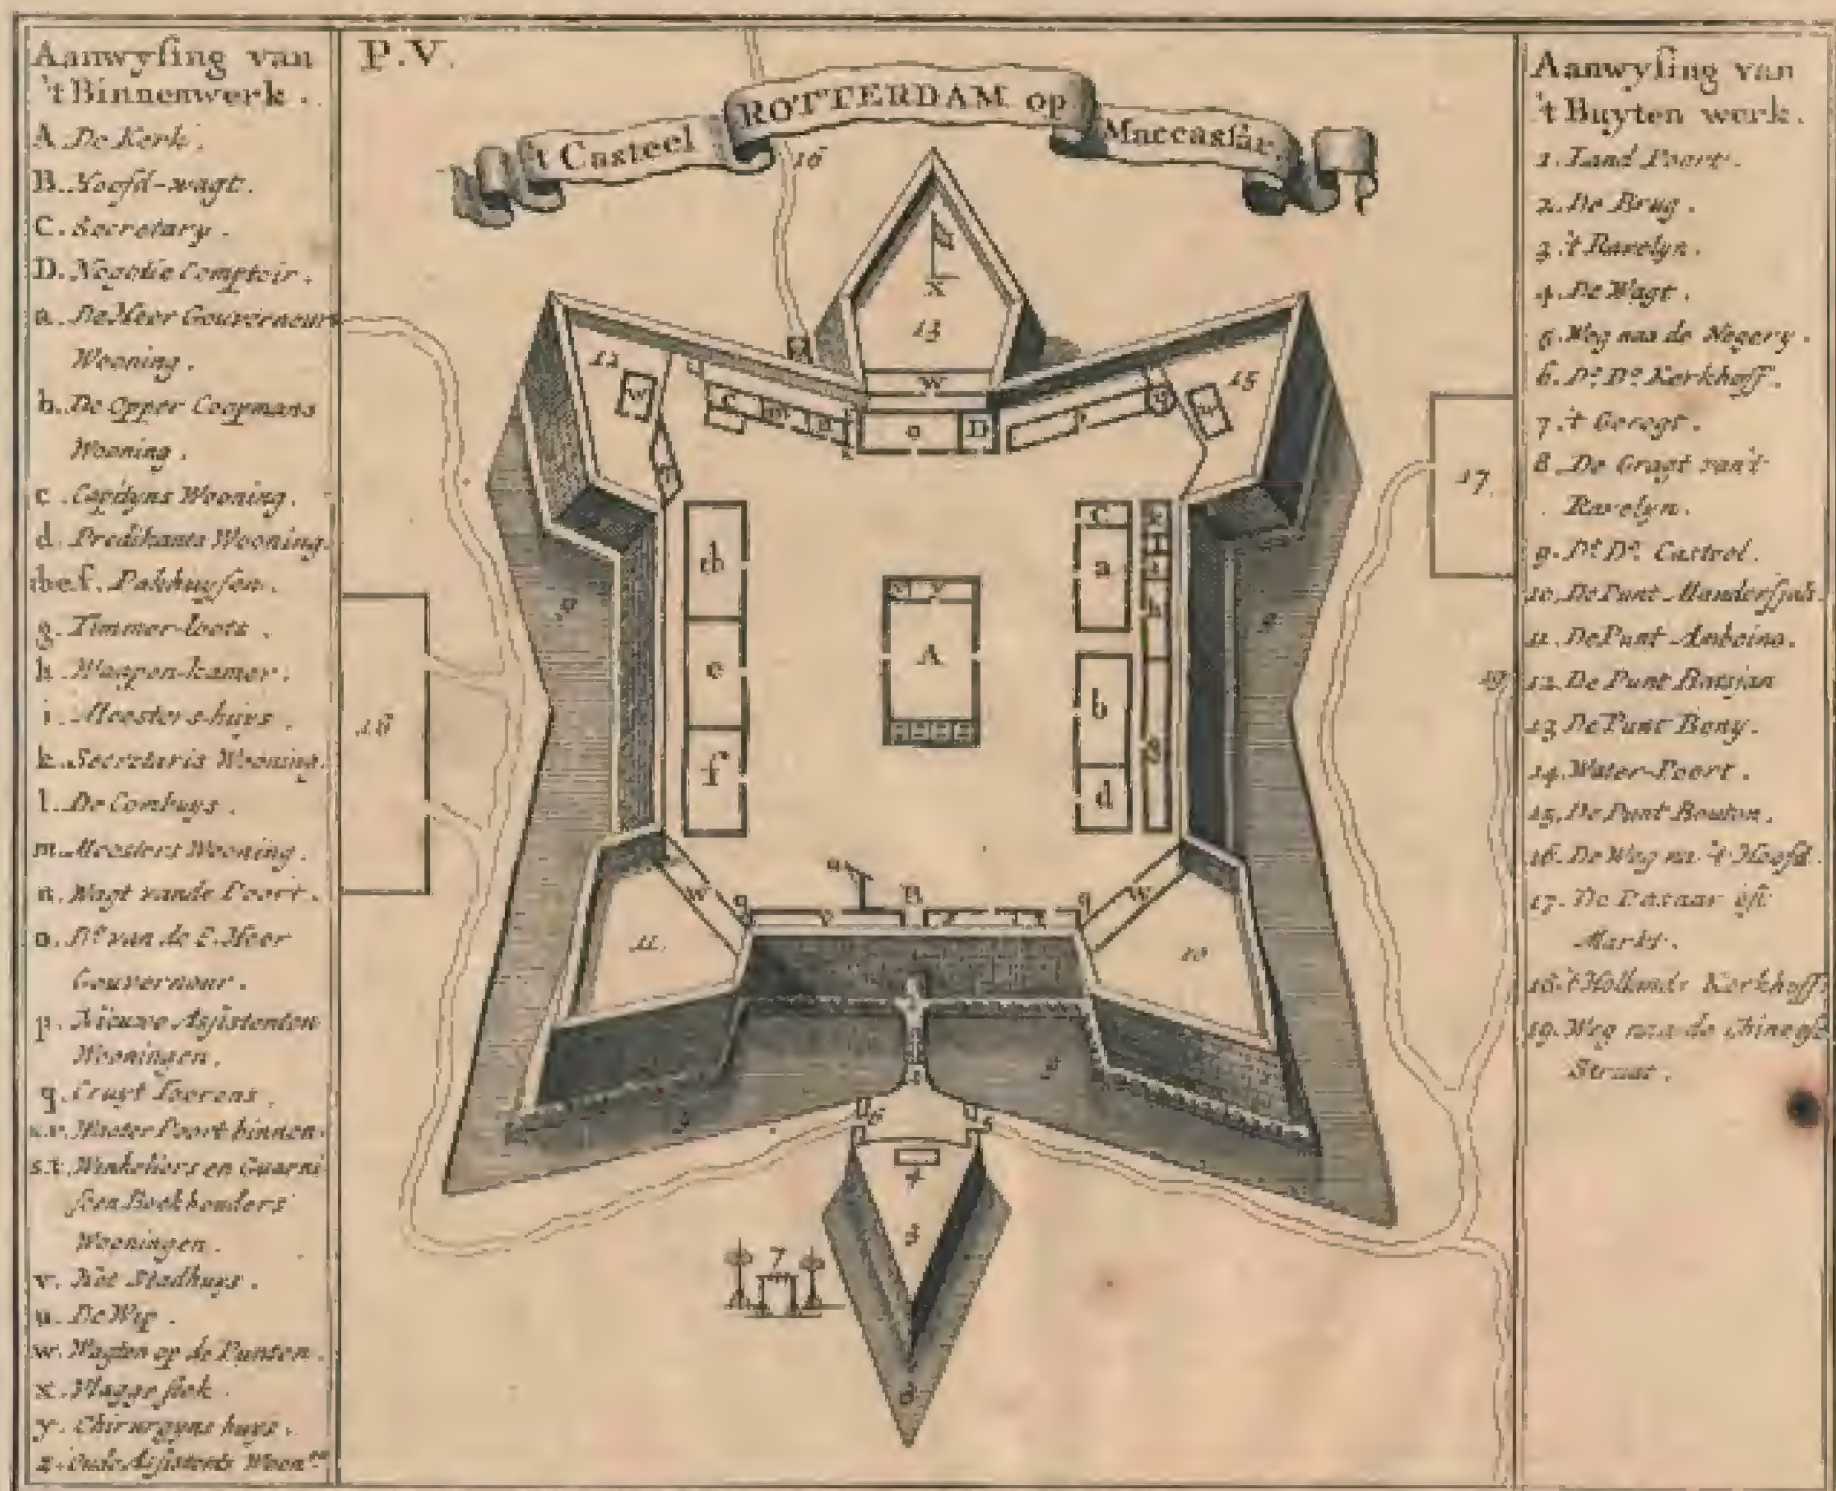 Aanwysing van
't Binnenwerk.
A. De Kerk.
B. Hoofd-wagt.
C. Secretary.
D. Negotie Comptoir.
a. De Heer Gouverneurs
Wooning.
b. De Opper Coopmans
Wooning.
c. Capityns Wooning.
d. Predikants Wooning.
e.f. Pakhuysen.
g. Timmer-loots.
h. Waapen-kamer.
i. Meesters-huys.
k. Secretaris Wooning.
l. De Combuys.
m. Meesters Wooning.
n. Wagt vande Poort.
o. Do van de E. Heer
Gouverneur.
p. Nieuwe Assistenten
Wooningen.
q. Cruyt Toorens.
Water Poort binnen.
s.t. Winkeliers en Guarni
soen Boekhouders
Wooningen.
v. Het Stadhuys.
u. De Wip.
w. Wagten op de Punten.
x. Vlagge stok.
y. Chirurgyns huys.
z. Oude Assistents Woon.en
P.V.
't Casteel ROTTERDAM op Maccassar.
16
X
13
12
w
w
15
c
m
n
o
D
17
C
k
a
h
b
d
g
A
y
e
f
9
9
18
19
u
B
q
q
w
w
v
11
10
9
9
6
5
4
3
7
8
Aanwysing van
't Buyten werk.
1. Land Poort.
2. De Brug.
3. 't Ravelyn.
4. De Wagt.
5. Weg naa de Negery.
6. Do Do Kerkhoff.
7. 't Geregt.
8. De Gragt van 't
Ravelyn.
9. Do Do Casteel.
10. De Punt Mandersjah.
11. De Punt Amboina.
12. De Punt Batsjan
13. De Punt Bony.
14. Water-Poort.
15. De Punt Bouton.
16. De Weg na 't Hoofd.
17. De Bazaar oft
Markt.
18. 't Hollands Kerkhoff.
19. Weg naa de Chineese
Straat.